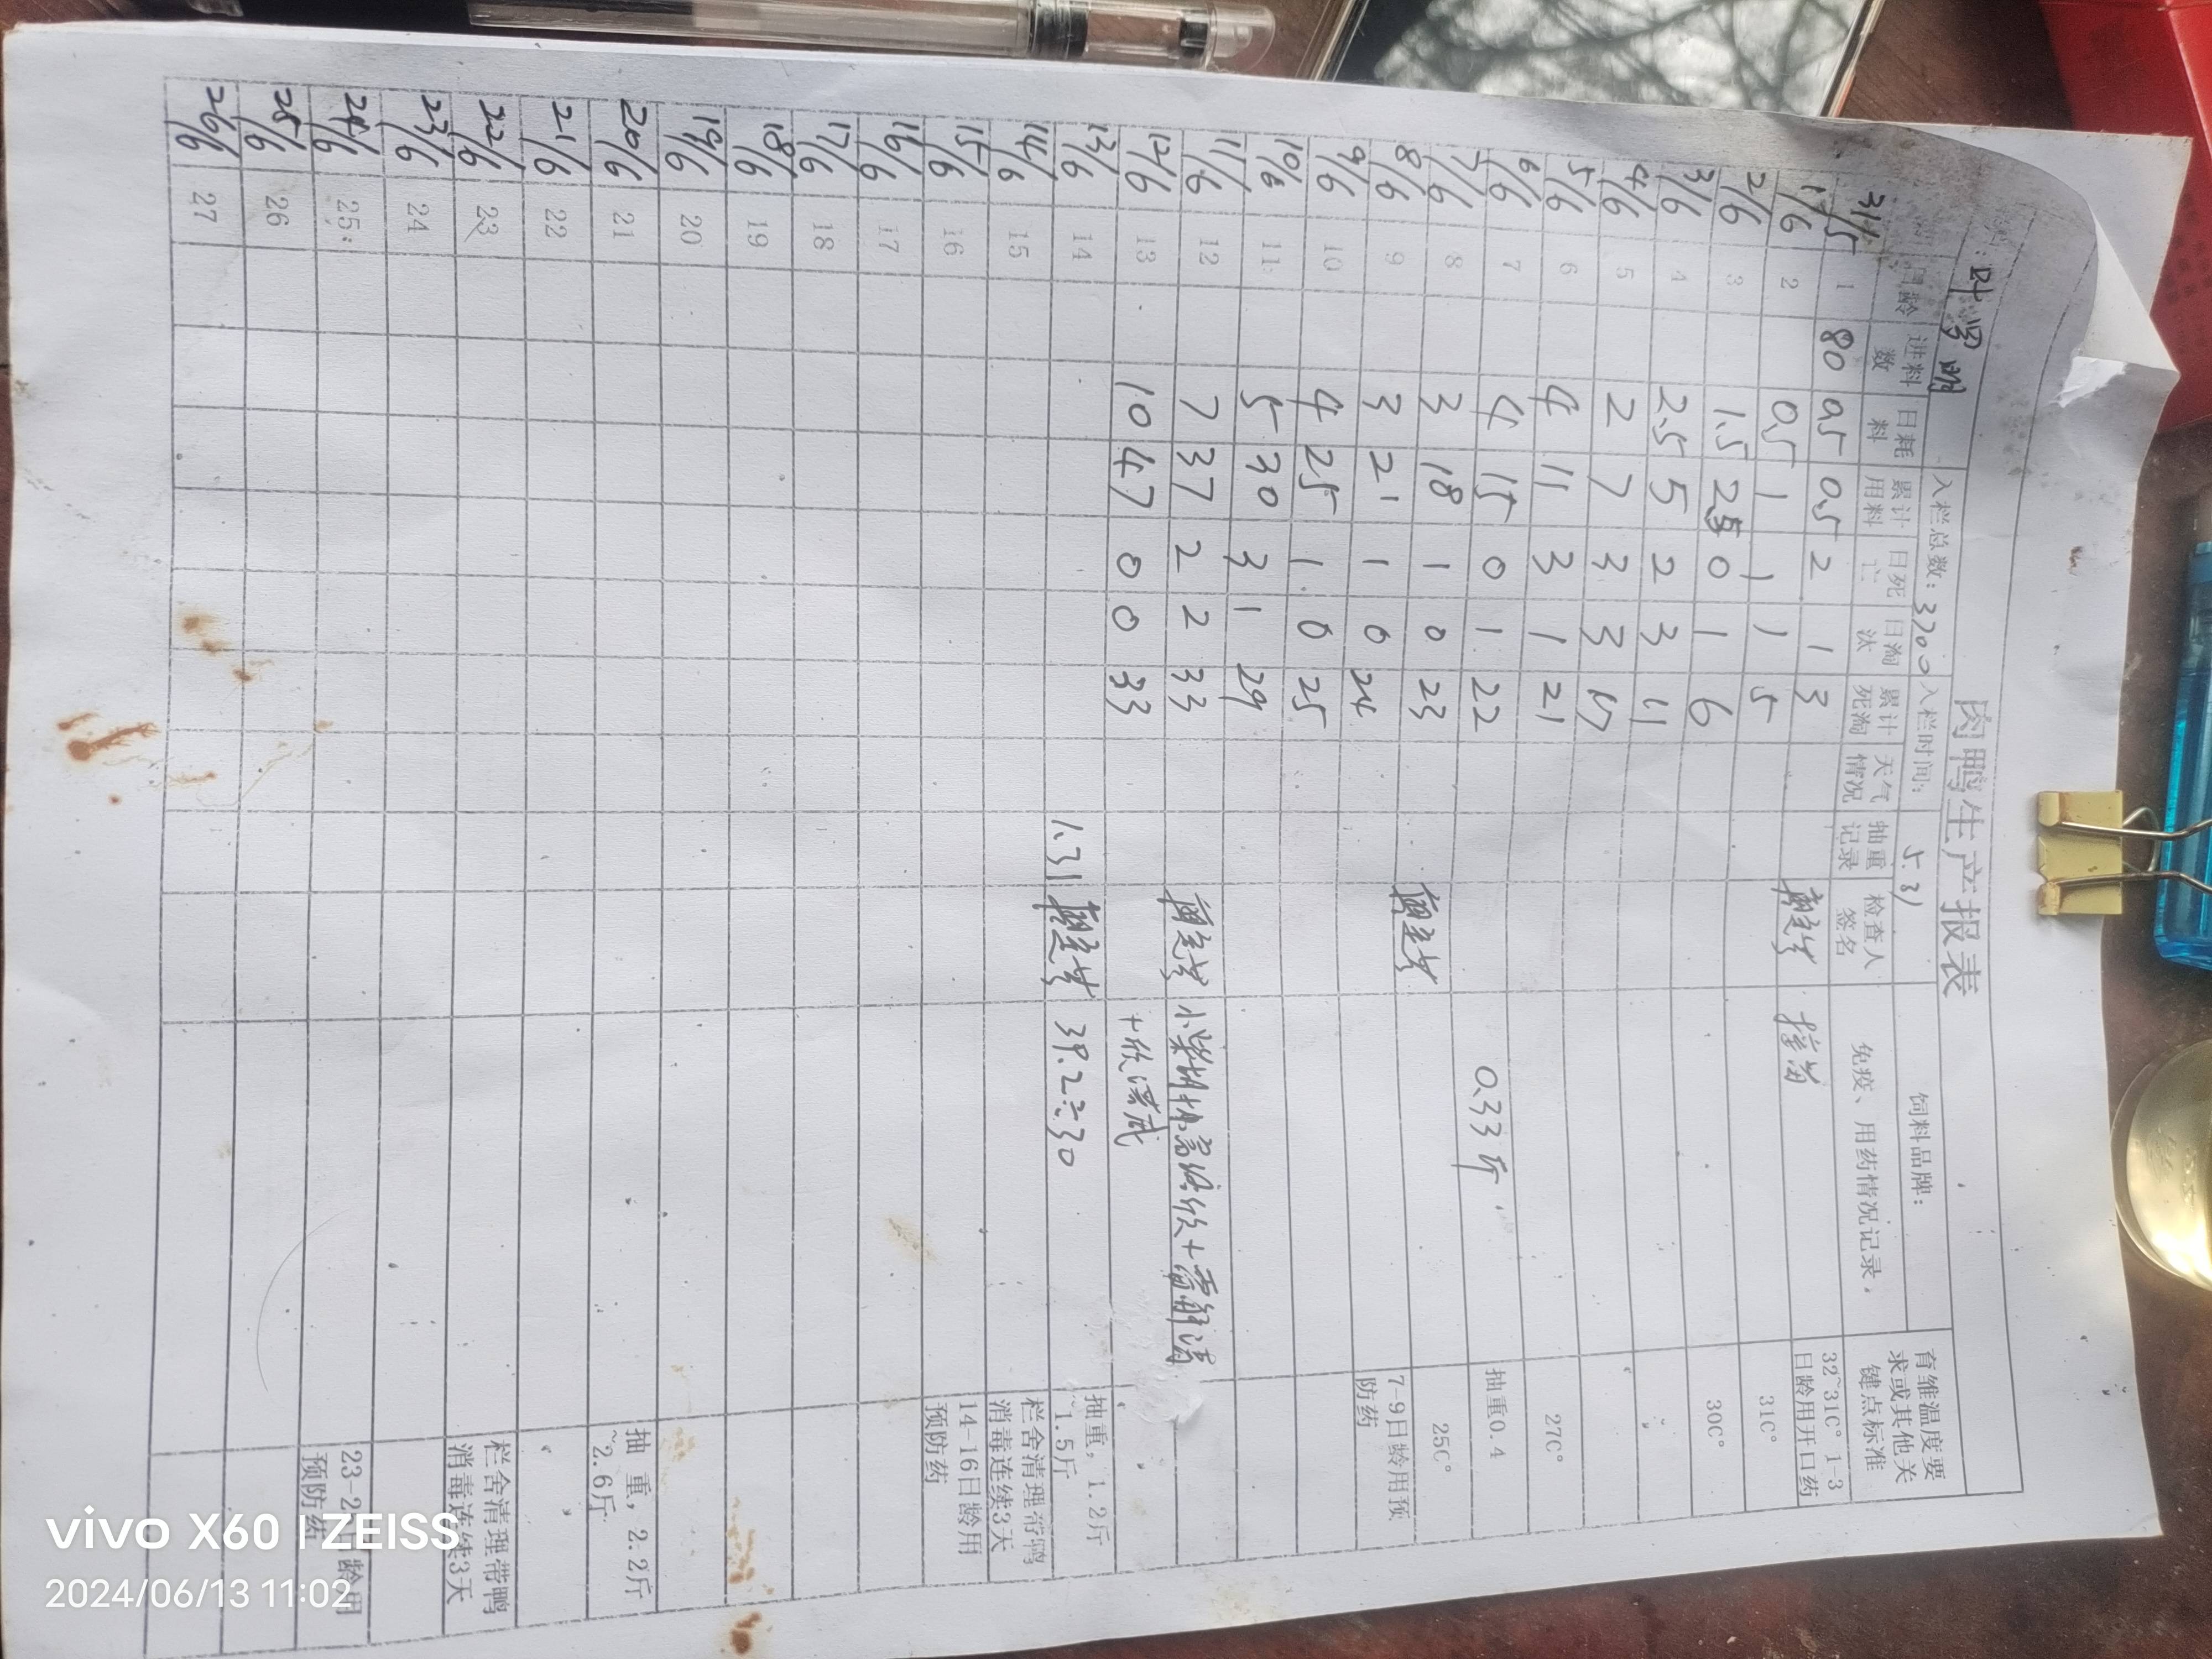 肉鸭生产报表
叶 明 入栏总数: 3700 入栏时间: 5.31 饲料品牌:
日龄 进料数 日耗料 累计用料 日死亡 日淘汰 累计死淘 天气情况 抽重记录 检查人签名 免疫、用药情况记录, 育雏温度要求或其他关键点标准
31/5 1 80 0.5 0.5 2 1 3 接苗 32~31C° 1-3日龄用开口药
1/6 2 0.5 1 1 1 5 31C°
2/6 3 1.5 2.5 0 1 6 30C°
3/6 4 2.5 5 2 3 11
4/6 5 2 7 3 3 17
5/6 6 4 11 3 1 21 27C°
6/6 7 4 15 0 1 22 0.33斤 抽重0.4
7/6 8 3 18 1 0 23 25C°
8/6 9 3 21 1 0 24 7-9日龄用预防药
9/6 10 4 25 1 0 25
10/6 11 5 30 3 1 29
11/6 12 7 37 2 2 33 小柴胡
12/6 13 10 47 0 0 33
13/6 14 1.31 39.2÷30 抽重, 1.2斤~1.5斤
14/6 15 栏舍清理带鸭消毒连续3天
15/6 16 14-16日龄用预防药
16/6 17
17/6 18
18/6 19
19/6 20
20/6 21 抽 重, 2.2斤~2.6斤
21/6 22
22/6 23 栏舍清理带鸭消毒连续3天
23/6 24
24/6 25 23-2 龄用预防药
25/6 26
26/6 27
vivo X60 | ZEISS
2024/06/13 11:02